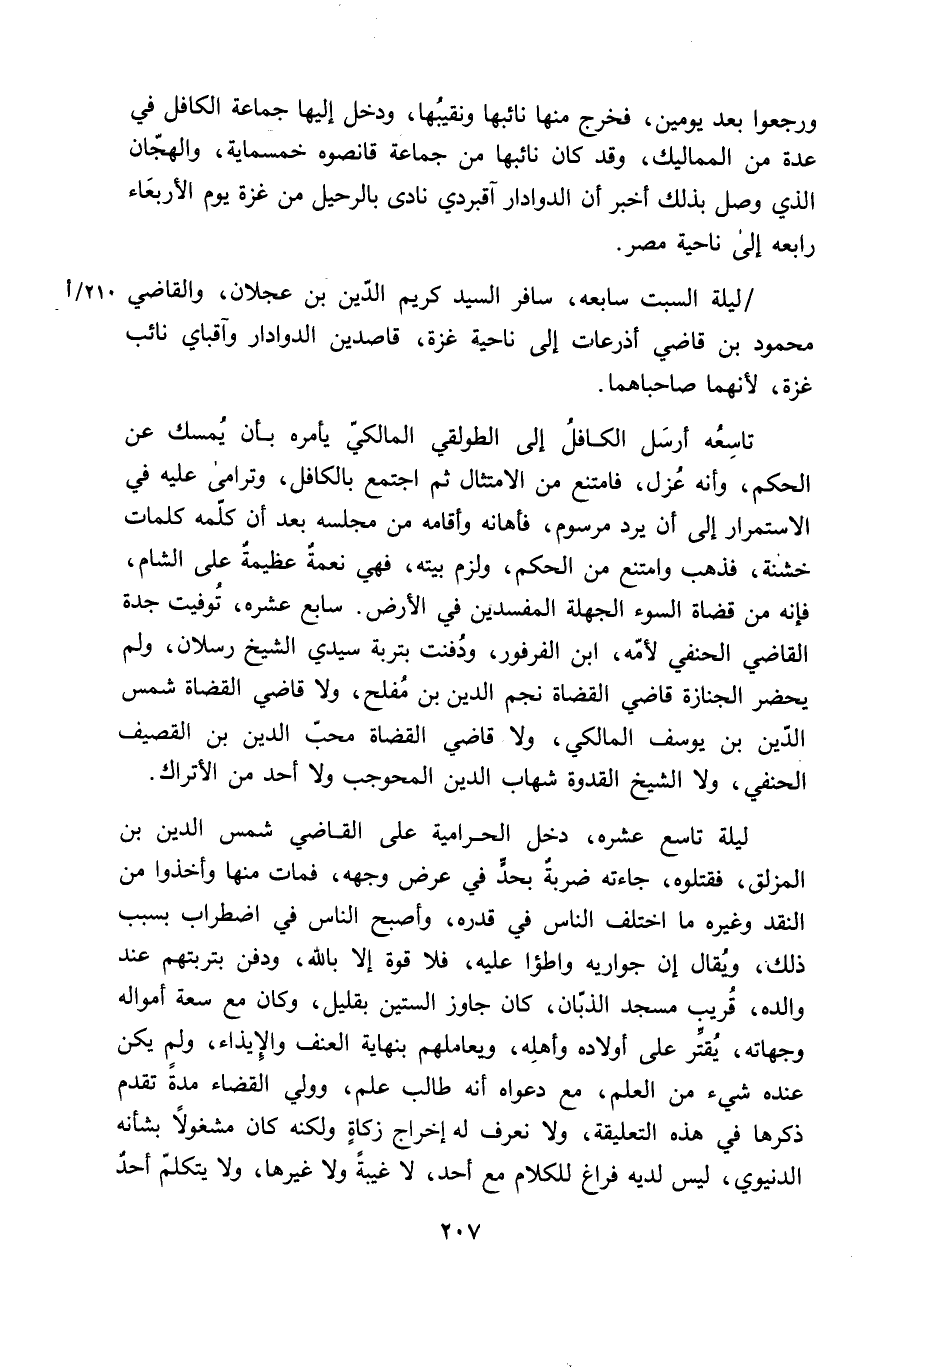 ورجعوا بعد يومين، فخرج منها نائبها ونقيبُها، ودخل إليها جماعة الكافل في
عدة من المماليك، وقد كان نائبها من جماعة قانصوه خمسماية، والهجّان
الذي وصل بذلك أخبر أن الدوادار آقبردي نادى بالرحيل من غزة يوم الأربعَاء
رابعه إلىٰ ناحية مصر.
/ليلة السبت سابعه، سافر السيد كريم الدّين بن عجلان، والقاضي ٢١٠/أ
محمود بن قاضي أذرعات إلى ناحية غزة، قاصدين الدوادار وآقباي نائب
غزة، لأنهما صاحباهما.
تاسِعُه أرسَل الكافلُ إلى الطولقي المالكيّ يأمره بأن يُمسك عن
الحكم، وأنه عُزل، فامتنع من الامتثال ثم اجتمع بالكافل، وترامىٰ عليه في
الاستمرار إلى أن يرد مرسوم، فأهانه وأقامه من مجلسه بعد أن كلّمه كلمات
خشنة، فذهب وامتنع من الحكم، ولزم بيته، فهي نعمةٌ عظيمةٌ على الشام،
فإنه من قضاة السوء الجهلة المفسدين في الأرض. سابع عشره، تُوفيت جدة
القاضي الحنفي لأمّه، ابن الفرفور، ودُفنت بتربة سيدي الشيخ رسلان، ولم
يحضر الجنازة قاضي القضاة نجم الدين بن مُفلح، ولا قاضي القضاة شمس
الدّين بن يوسف المالكي، ولا قاضي القضاة محبّ الدين بن القصيف
الحنفي، ولا الشيخ القدوة شهاب الدين المحوجب ولا أحد من الأتراك.
ليلة تاسع عشره، دخل الحرامية على القاضي شمس الدين بن
المزلق، فقتلوه، جاءته ضربةٌ بحدٍّ في عرض وجهه، فمات منها وأخذوا من
النقد وغيره ما اختلف الناس في قدره، وأصبح الناس في اضطراب بسبب
ذلك، ويُقال إن جواريه واطؤا عليه، فلا قوة إلا بالله، ودفن بتربتهم عند
والده، قُريب مسجد الذبّان، كان جاوز الستين بقليل، وكان مع سعة أمواله
وجهاته، يُقتِّر على أولاده وأهله، ويعاملهم بنهاية العنف والإيذاء، ولم يكن
عنده شيء من العلم، مع دعواه أنه طالب علم، وولي القضاء مدةً تقدم
ذكرها في هذه التعليقة، ولا نعرف له إخراج زكاةٍ ولكنه كان مشغولاً بشأنه
الدنيوي، ليس لديه فراغ للكلام مع أحد، لا غيبةً ولا غيرها، ولا يتكلمّ أحدٌ
٢٠٧